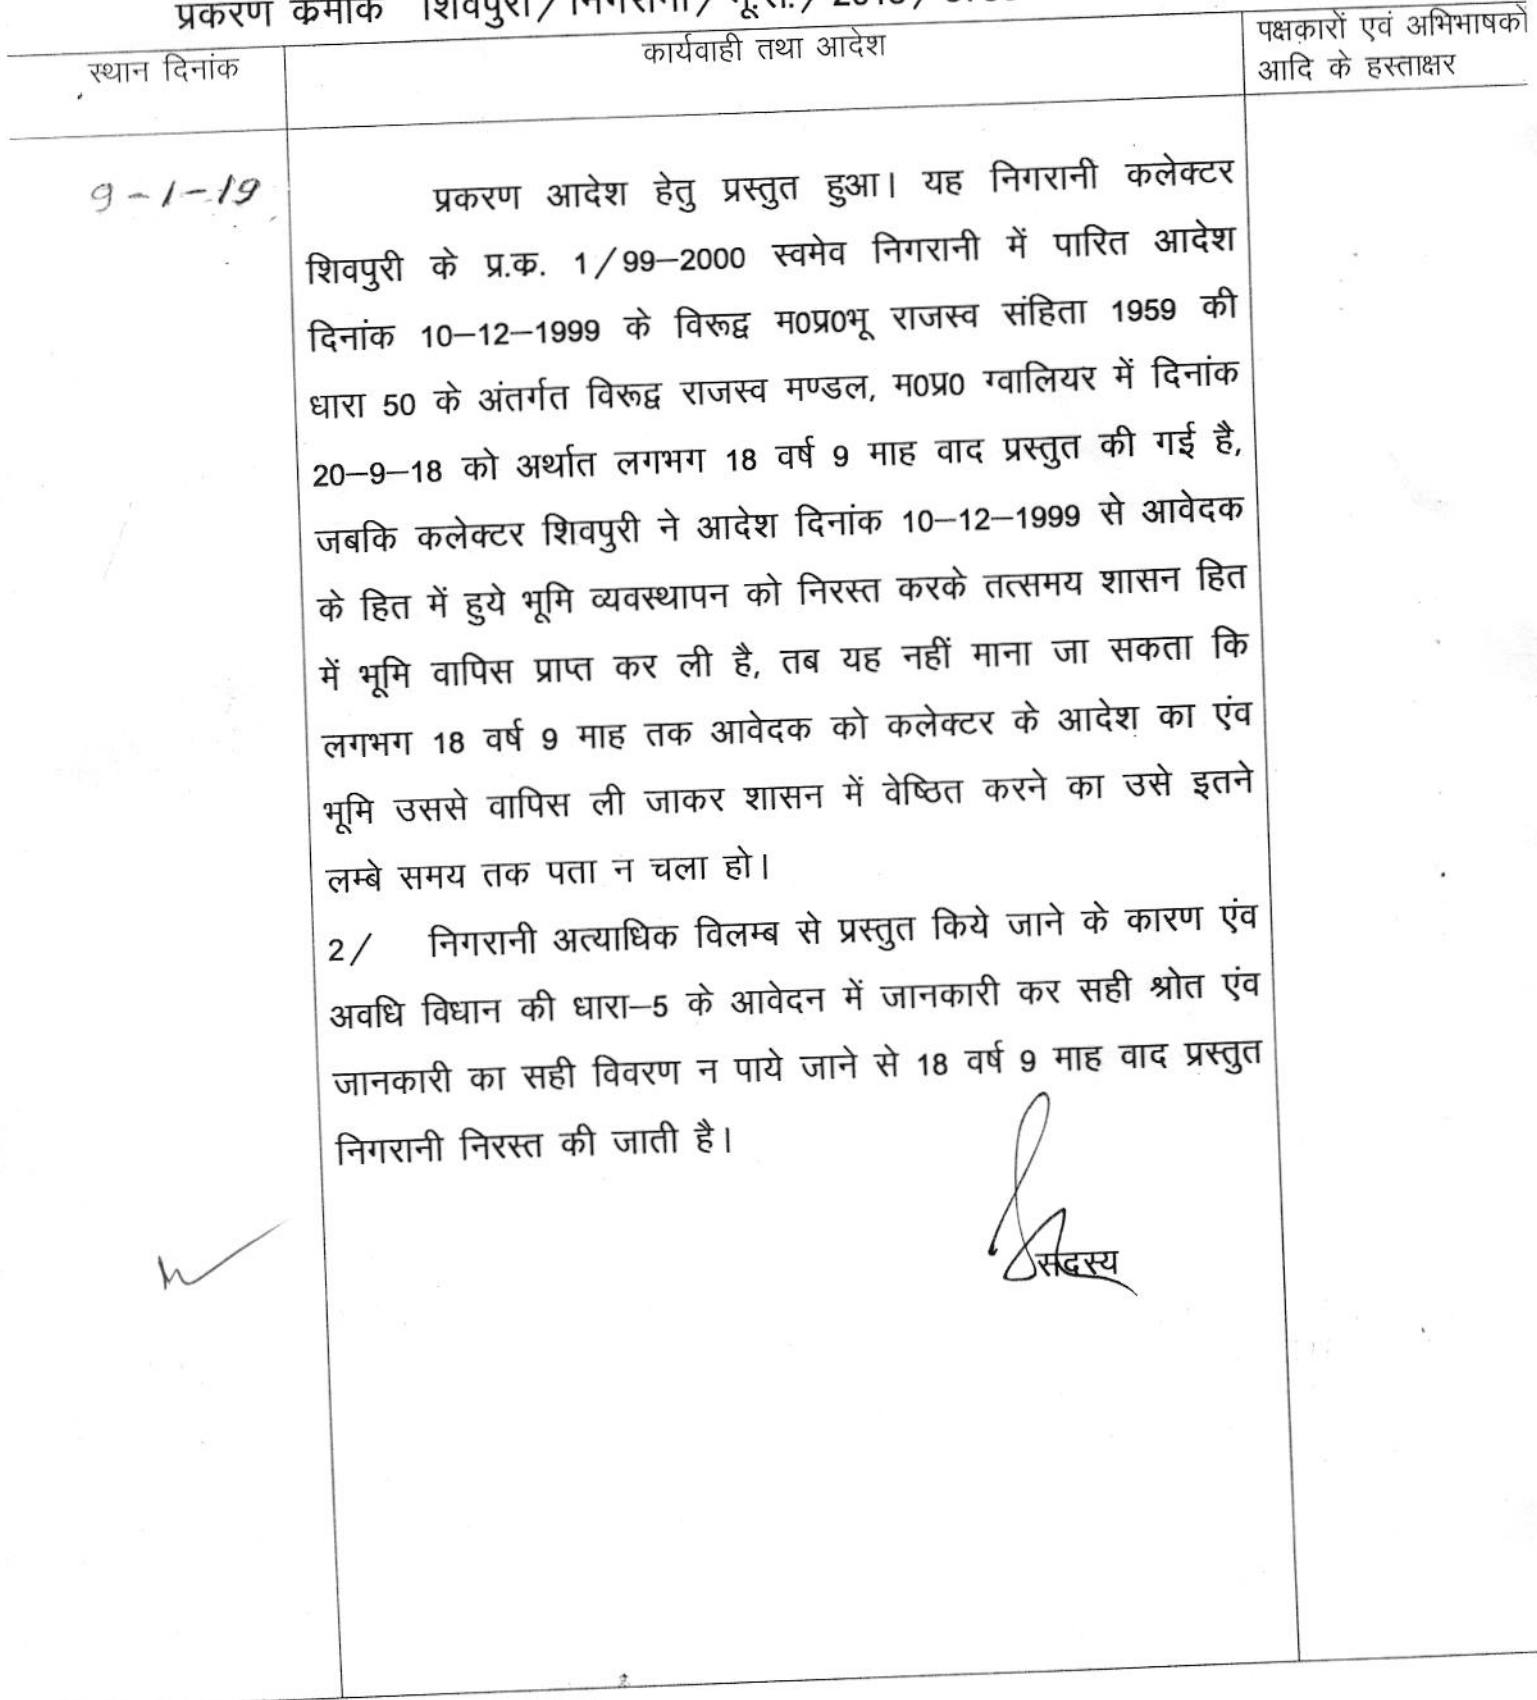 प्रकरण कमांक शिवपुरी/निगरानी/भू.रा./2018/
स्थान दिनांक
कार्यवाही तथा आदेश
पक्षकारों एवं अभिभाषकों
आदि के हस्ताक्षर
9-1-19
प्रकरण आदेश हेतु प्रस्तुत हुआ। यह निगरानी कलेक्टर
शिवपुरी के प्र.क. 1/99–2000 स्वमेव निगरानी में पारित आदेश
दिनांक 10–12–1999 के विरूद्व म0प्र0भू राजस्व संहिता 1959 की
धारा 50 के अंतर्गत विरूद्व राजस्व मण्डल, म0प्र0 ग्वालियर में दिनांक
20–9–18 को अर्थात लगभग 18 वर्ष 9 माह वाद प्रस्तुत की गई है,
जबकि कलेक्टर शिवपुरी ने आदेश दिनांक 10–12–1999 से आवेदक
के हित में हुये भूमि व्यवस्थापन को निरस्त करके तत्समय शासन हित
में भूमि वापिस प्राप्त कर ली है, तब यह नहीं माना जा सकता कि
लगभग 18 वर्ष 9 माह तक आवेदक को कलेक्टर के आदेश का एंव
भूमि उससे वापिस ली जाकर शासन में वेष्ठित करने का उसे इतने
लम्बे समय तक पता न चला हो।
2/ निगरानी अत्याधिक विलम्ब से प्रस्तुत किये जाने के कारण एंव
अवधि विधान की धारा–5 के आवेदन में जानकारी कर सही श्रोत एंव
जानकारी का सही विवरण न पाये जाने से 18 वर्ष 9 माह वाद प्रस्तुत
निगरानी निरस्त की जाती है।
सदस्य